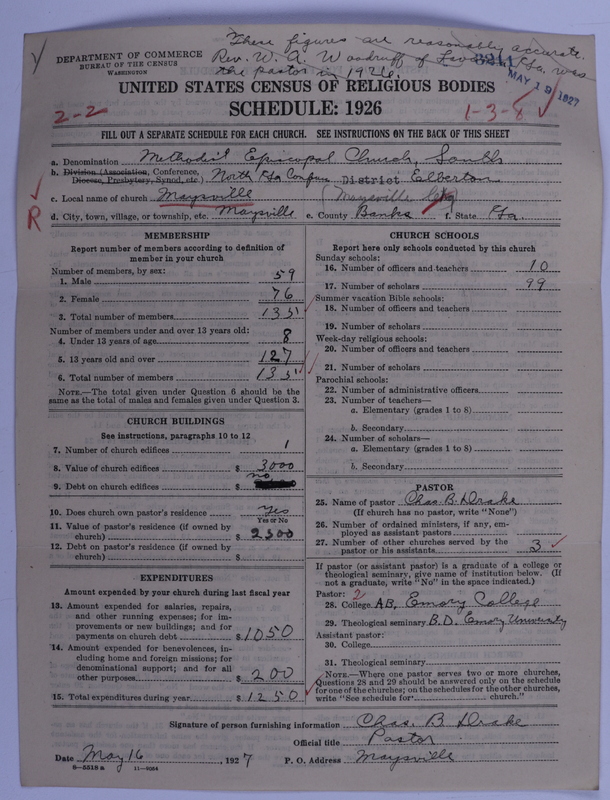 These figures are reasonably accurate.
DEPARTMENT OF COMMERCE
BUREAU OF THE CENSUS
WASHINGTON
Rev. W. A. Woodruff of Ga. was
the pastor in 1926.
3211
MAY 19 1927
UNITED STATES CENSUS OF RELIGIOUS BODIES
SCHEDULE: 1926
2-2
1-3-8
FILL OUT A SEPARATE SCHEDULE FOR EACH CHURCH. SEE INSTRUCTIONS ON THE BACK OF THIS SHEET
a. Denomination Methodist Episcopal Church, South
b. Division (Association, Conference, Diocese, Presbytery, Synod, etc.) North Ga Confer District Elberton
c. Local name of church Maysville (Maysville
R
d. City, town, village, or township, etc. Maysville e. County Banks f. State Ga.
MEMBERSHIP
Report number of members according to definition of
member in your church
Number of members, by sex:
1. Male 59
2. Female 76
3. Total number of members 135
Number of members under and over 13 years old:
4. Under 13 years of age 8
5. 13 years old and over 127
6. Total number of members 135
NOTE.—The total given under Question 6 should be the
same as the total of males and females given under Question 3.
CHURCH BUILDINGS
See instructions, paragraphs 10 to 12
7. Number of church edifices 1
8. Value of church edifices $ 3000
9. Debt on church edifices $ no
10. Does church own pastor's residence yes
Yes or No
11. Value of pastor's residence (if owned by
church) $ 2500
12. Debt on pastor's residence (if owned by
church) $
EXPENDITURES
Amount expended by your church during last fiscal year
13. Amount expended for salaries, repairs,
and other running expenses; for im-
provements or new buildings; and for
payments on church debt $ 1050
14. Amount expended for benevolences, in-
cluding home and foreign missions; for
denominational support; and for all
other purposes $ 200
15. Total expenditures during year $ 1250
CHURCH SCHOOLS
Report here only schools conducted by this church
Sunday schools:
16. Number of officers and teachers 10
17. Number of scholars 99
Summer vacation Bible schools:
18. Number of officers and teachers
19. Number of scholars
Week-day religious schools:
20. Number of officers and teachers
21. Number of scholars
Parochial schools:
22. Number of administrative officers
23. Number of teachers—
a. Elementary (grades 1 to 8)
b. Secondary
24. Number of scholars—
a. Elementary (grades 1 to 8)
b. Secondary
PASTOR
25. Name of pastor Chas. B. Drake
(If church has no pastor, write "None")
26. Number of ordained ministers, if any, em-
ployed as assistant pastors
27. Number of other churches served by the
pastor or his assistants 3
If pastor (or assistant pastor) is a graduate of a college or
theological seminary, give name of institution below. (If
not a graduate, write "No" in the space indicated.)
Pastor: 2
28. College AB, Emory College
29. Theological seminary B.D. Emory University
Assistant pastor:
30. College
31. Theological seminary
NOTE.—Where one pastor serves two or more churches,
Questions 28 and 29 should be answered only on the schedule
for one of the churches; on the schedules for the other churches,
write "See schedule for church."
Signature of person furnishing information Chas. B. Drake
Official title Pastor
Date May 16, 1927 P. O. Address Maysville
8-5518 a 11-9264